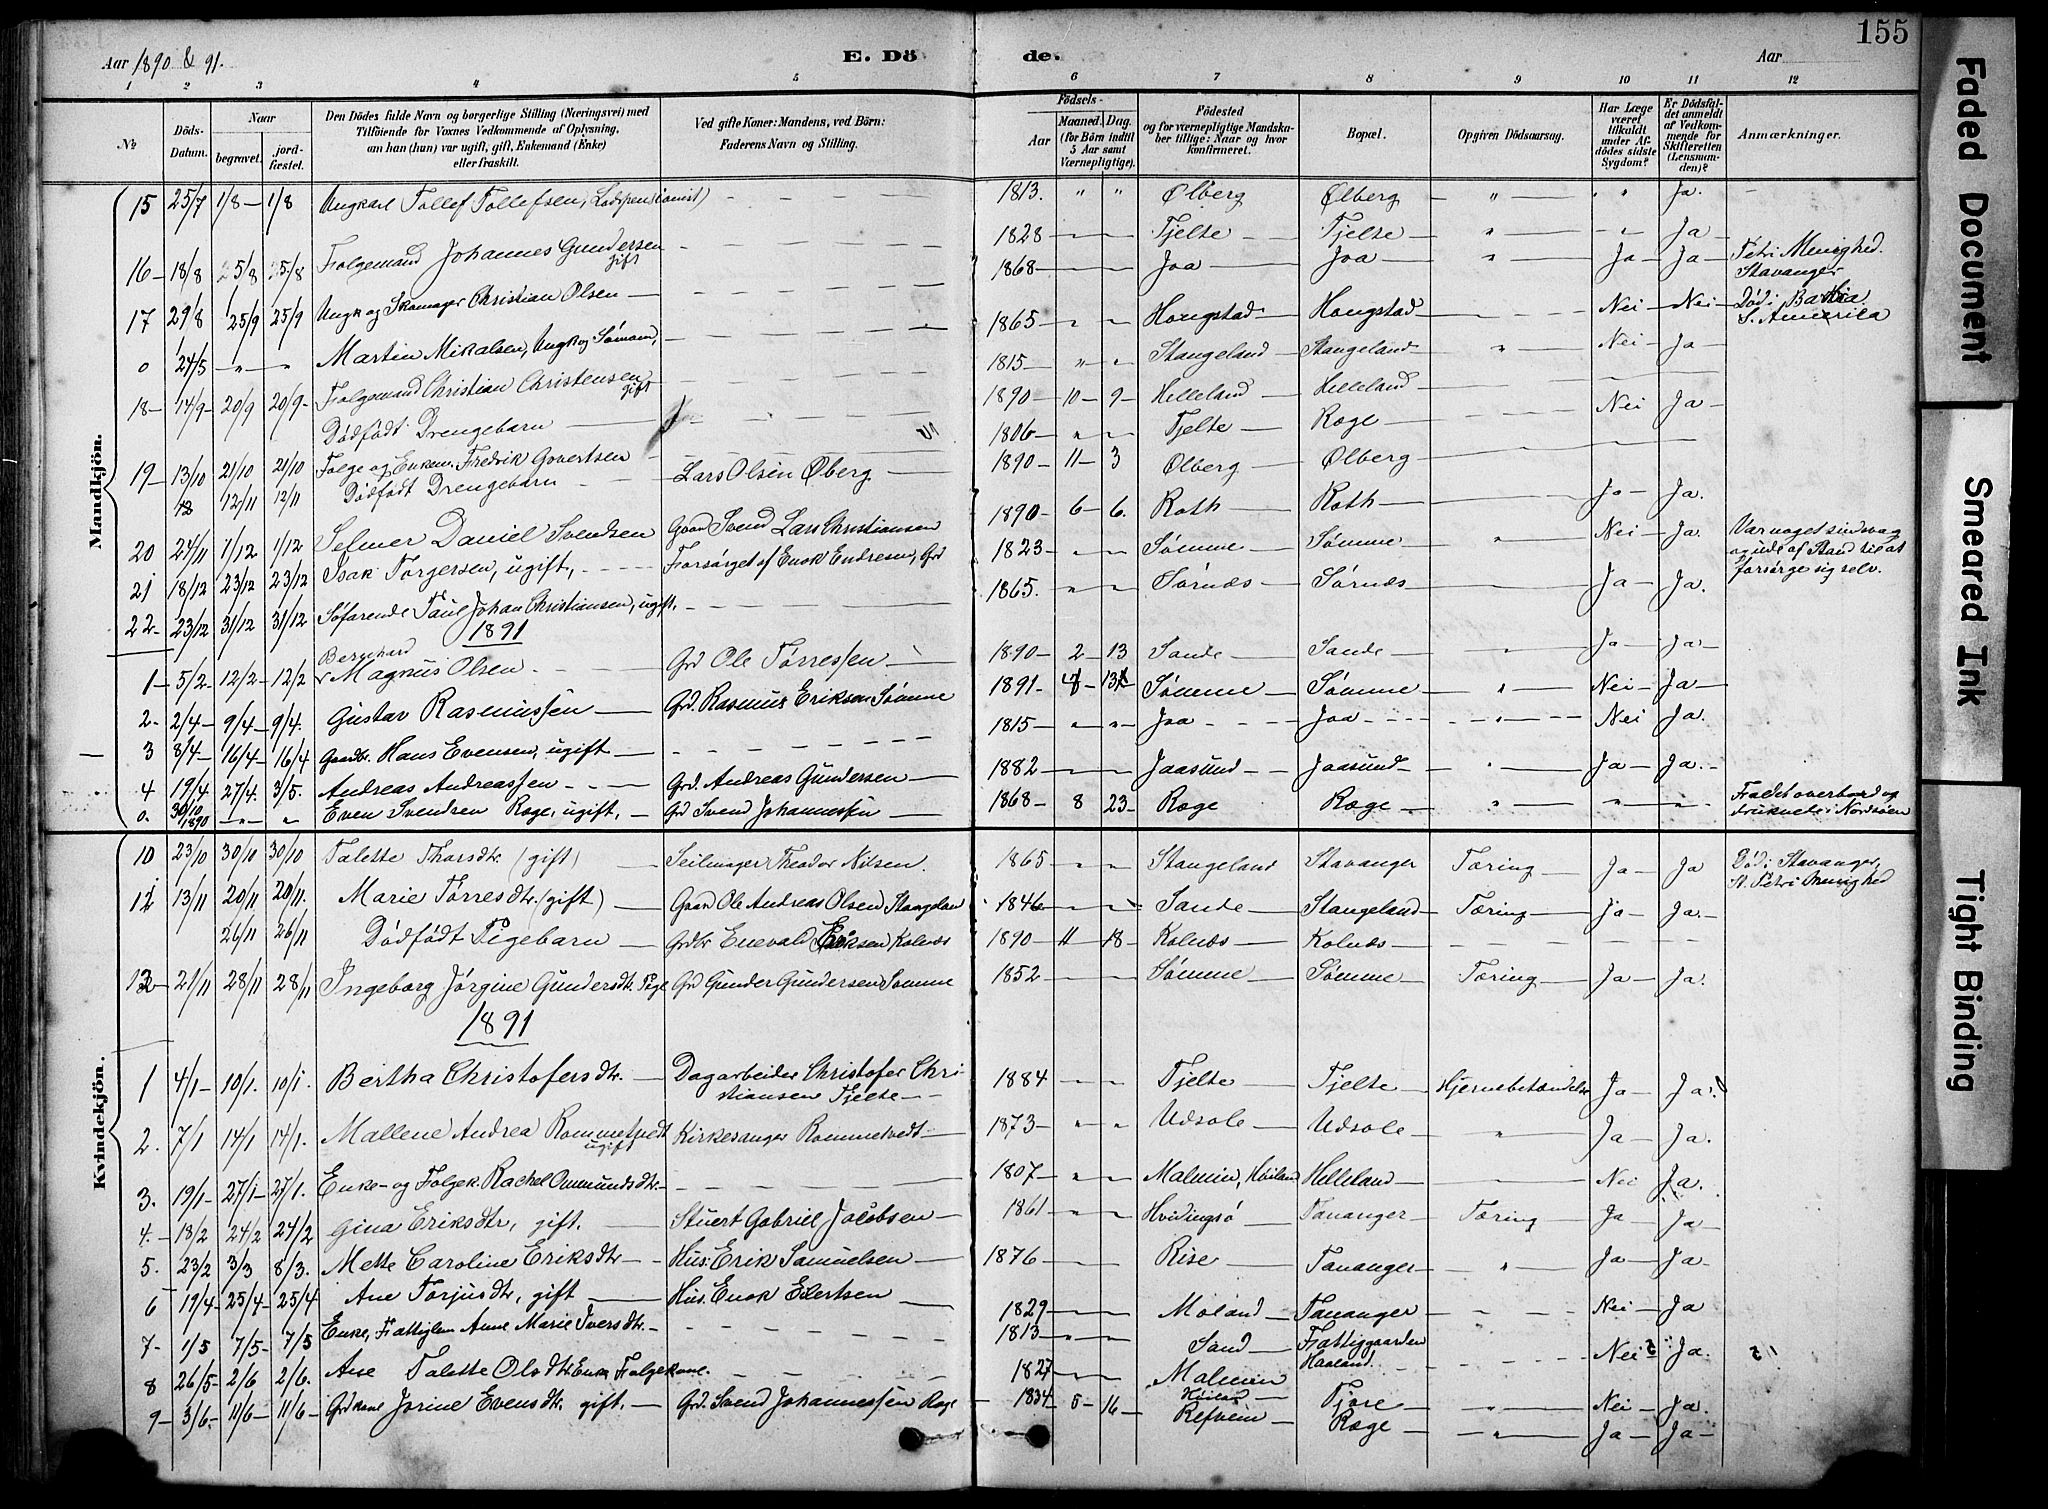 155
Aar 1890 & 91. E. Döde. Aar
1 2 3 4 5 6 7 8 9 10 11 12
№ Döds-Datum. Naar begravet. jordfæstet. Den Dödes fulde Navn og borgerlige Stilling (Næringsvei) med Tilföiende for Voxnes Vedkommende af Oplysning, om han (hun) var ugift, gift, Enkemand (Enke) eller fraskilt. Ved gifte Koner: Mandens, ved Börn: Faderens Navn og Stilling. Födsels- Aar Maaned. Dag. (for Börn indtil 5 Aar samt Værnepligtige). Födested og for værnepligtige Mandskaber tillige: Naar og hvor konfirmeret. Bopæl. Opgiven Dödsaarsag. Har Læge været tilkaldt under Afdödes sidste Sygdom? Er Dödsfaldet anmeldt af Vedkommende for Skifteretten (Lensmanden)? Anmærkninger.
Mandkjön.
15 25/7 1/8 1/8 Ungkarl Tollef Tollefsen, 1813. " " Ølberg Ølberg " " Ja.
16 18/8 25/8 25/8 Folgemand Johannes Gundersen gift 1828 Tjelte Tjelte " " Ja
17 29/8 25/9 25/9 Ungk og Skomager Christian Olsen 1868 Joa Joa " Ja Ja Petri Menighed. Stavanger
o 24/5 " " Martin Mikalsen, Ungk og Sømand, 1865 " " Hougstad Hougstad Nei Nei Død i Bahia S. America
18 14/9 20/9 20/9 Folgemand Christian Christensen gift 1815 " " Stangeland Stangeland " Nei Ja
Dødfødt Drengebarn 1890 10 9 Helleland Helleland
19 13/10 21/10 21/10 Folge og Enkem. Fredrik Govertsen 1806 " " Tjelte Ræge Nei Ja
12/11 12/11 Dødfødt Drengebarn Lars Olsen Øberg 1890 11 3 Ølberg Ølberg
20 24/11 1/12 1/12 Selmer Daniel Svendsen Gaard Svend Lars Christiansen 1890 6 6 Roth Roth Ja Ja.
21 18/12 23/12 23/12 Isak Torgersen, ugift, Forsørget af Enok Endresen, Grd 1823 Sømme Sømme " Nei Ja. Var noget sindsvag og ude af Stand til at forsørge sig selv.
22 23/12 31/12 31/12 Søfarende Paul Johan Christiansen, ugift. 1865. " " Sørnæs Sørnæs Ja Ja.
1891
1 5/2 12/2 12/2 Bernhard Magnus Olsen Grd Ole Tørressen 1890 2 13 Sande Sande " Ja Ja
2 2/4 9/4 9/4. Gustav Rasmussen Grd. Rasmus Eriksen Sømme 1891 Sømme Sømme " Nei Ja
3 8/4 16/4 16/4 Gaardbr. Hans Evensen, ugift 1815 " " Joa Joa " Nei Ja.
4 19/4 27/4. 3/5. Andreas Andreassen Grd. Andreas Gundersen 1882 Jaasund Jaasund " Ja Ja.
o. 30/10 1890 " " Even Svendsen Ræge, ugift, Grd Svend Johannessen 1868 8 23 Ræge Ræge " " " Faldet overbord og druknet i Nordsøen
Kvindekjön.
10 23/10 30/10 30/10 Talette Tharsdtr (gift) Seilmager Theodor Nilsen. 1865 " " Stangeland Stavanger Tæring Ja Ja Død i Stavanger, St. Petri Menighed
13/11 20/11 20/11. Marie Tørresdtr. (gift) Gaard Ole Andreas Olsen Stangelan 1846 Sande Stangeland Tæring Ja Ja.
26/11 26/11 Dødfødt Pigebarn Grdbr Enevald Eriksen Kolnæs 1890 11 18 Kolnæs Kolnæs
21/11 28/11 28/11 Ingeborg Jørgine Gundersdtr. Pige Grd Gunder Gundersen Sømme 1852 Sømme Sømme Tæring Ja Ja.
1891
1 4/1 10/1. 10/1. Bertha Christofersdtr. Dagarbeider Christofer Christiansen Tjelte 1884 " " Tjelte Tjelte Hjernebetændelse Ja Ja.
2. 7/1 14/1 14/1. Mallene Andrea Rommetvedt ugift Kirkesanger Rommetvedt 1873 " " Udsole Udsole " Ja Ja.
3. 19/1 27/1 27/1. Enke- og Folgek. Rachel Ommundsdtr. 1807 " Malmin, Høiland Helleland Nei Ja.
4. 18/2 24/2 24/2 Gina Eriksdtr, gift. Stuert Gabriel Jacobsen 1861 " " Hvidingsø Tananger Tæring Ja Ja
5. 23/2 3/3 8/3. Mette Caroline Eriksdtr Hus. Erik Samuelsen 1876 Rise Tananger " Ja Ja
6 19/4 25/4 25/4 Ane Torjusdtr, gift Hus. Enok Elertsen 1829 Moland Tananger " Nei Ja
7 1/5 7/5 7/5 Enke, Fattiglem Anne Marie Iversdtr. 1813 " " Sand Fattiggaarden Haaland. Nei Ja.
8 26/5 2/6 2/6. Ane Talette Olsdtr Enke Folgekone. 1827 Malmin Høiland Tjore " Nei Ja
9 3/6 11/6 11/6 Grdkone Jorine Evensdtr. gift. Grd. Svend Johannessen Ræge 1834 5 16 Refvem Ræge " Ja Ja
Faded Document
Smeared Ink
Tight Binding